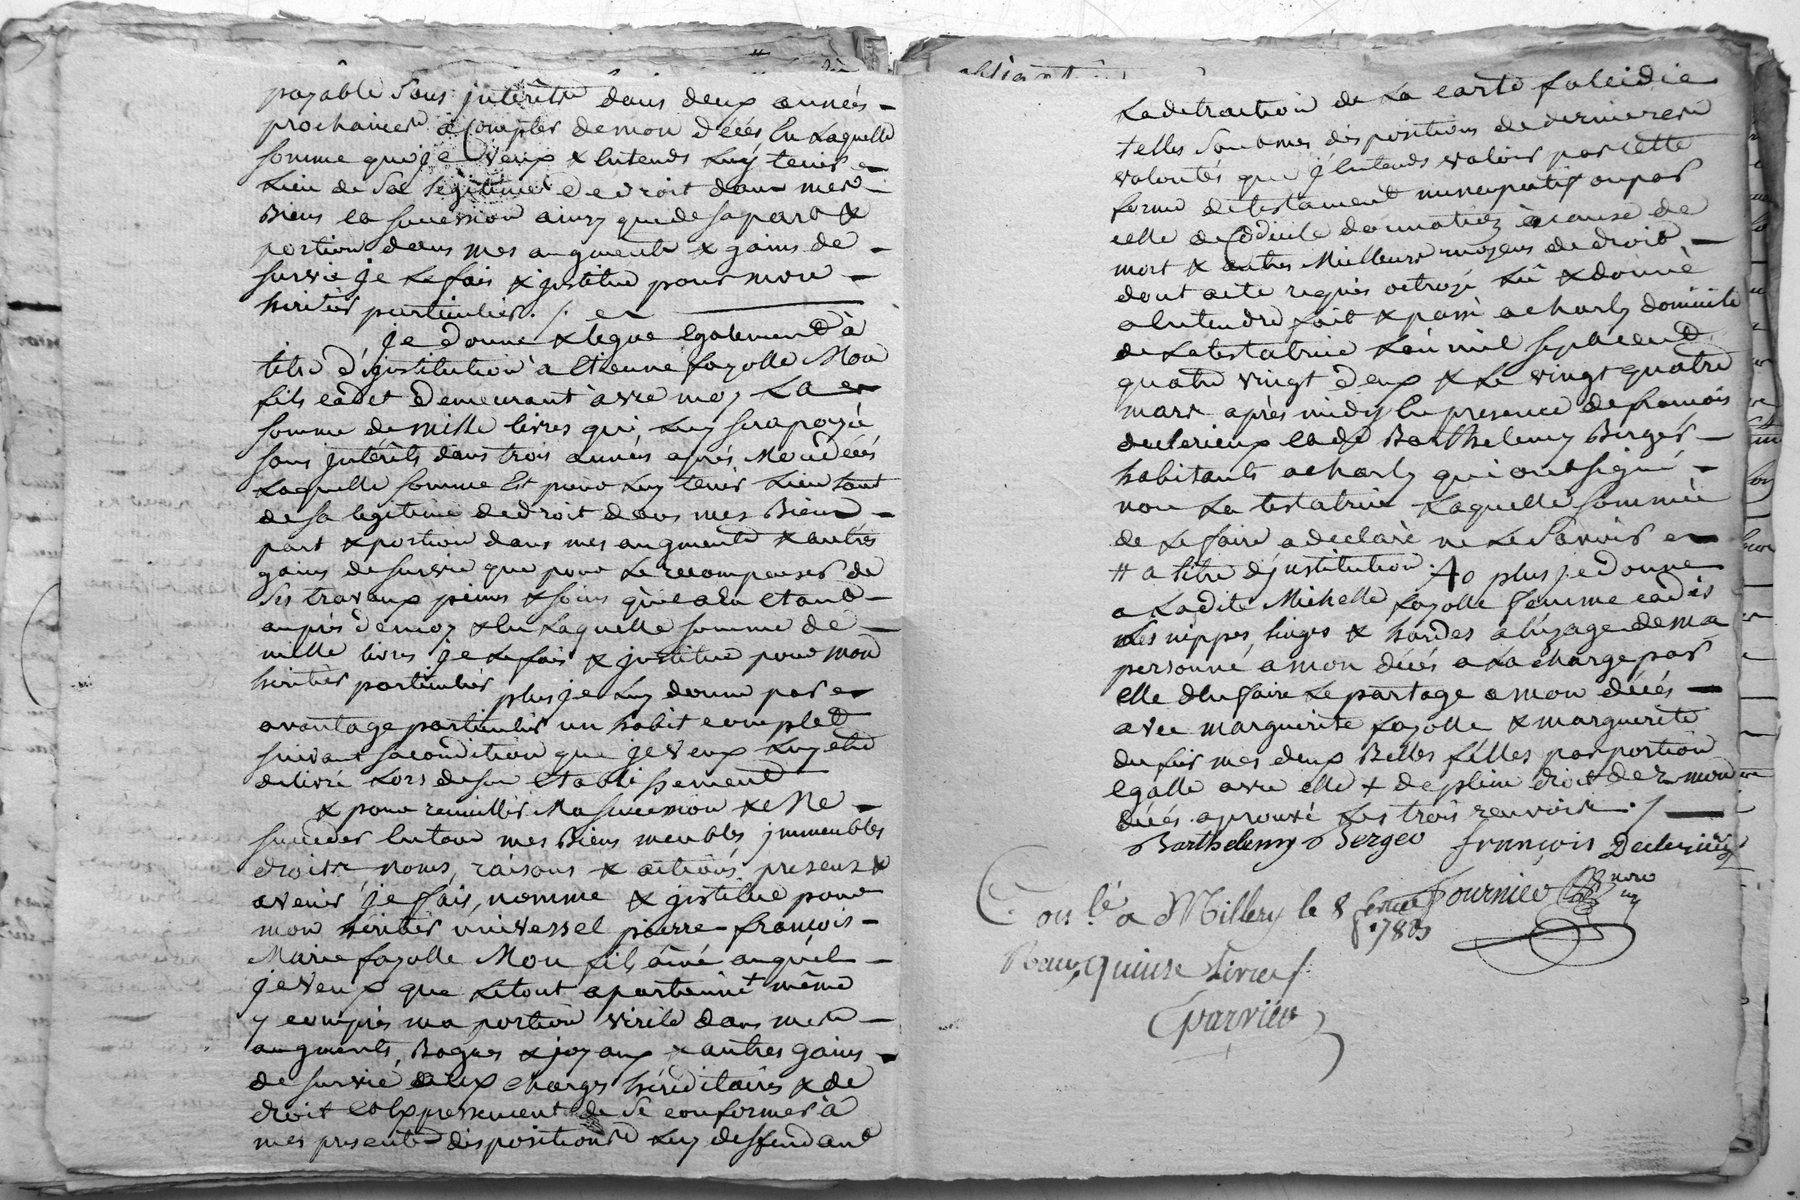 payable sans jnterêts dans deux années
prochaines à Compter demon décés, En Laquelle
somme queje veux & Entends Luy tenir
Lieu de Sa légitime de droit dans mes
Biens et succession ainsy que de sa part &
portion dans mes augments & gains de
survie je Le fais & jnstitue pour mon
heritier particulier. /.
je donne & legue Egalement à
titre d'jnstitution à Etienne fayolle Mon
fils cadet demeurant avec moy La
somme de mille livres qui Luy sera payée
sans jntérêts dans trois années après Mon décés
Laquelle somme Est pour Luy tenir Lieu tant
de sa legitime de droit dans mes Biens
part & portion dans mes augments & autres
gains de survie que pour Le recompenser de
Ses travaux peines & soins qu'il a Eu Etant
auprès de moy & En Laquelle somme de
mille livres je Le fais & jnstitue pour mon
héritier particulier plus je Luy donne par
avantage particulier un habit complet
suivant sa condition que je veux Luy etre
delivré Lors de son Etablissement
& pour receuillir Ma succession & Me
succeder En tous mes Biens meubles, jmmeubles
droits, noms, raisons & actions, presents &
avenir, je fais, nomme & jnstitue pour
mon héritier universel pierre françois
Marie fayolle Mon fils ainé auquel
je veux que Le tout apartienne même
y compris ma portion virile dans mes
augments, Bagues & joyaux & autres gains
de survie aux charges héréditaires & de
droit et Expressement de Se conformer à
mes presentes dispositions Luy deffendant
La detraction de La carte falcidie
telles Sont mes dispositions de dernieres
volontés que j'Entends valoir par cette
forme de testament nuncupatif ou par
celle de Codicile donnation à cause de
mort & autres Meilleurs moyens de droit,
dont acte requis octroyé Lû & donné
a Entendre fait & passé a charly domicile
de La testatrice L'an mil sept cent
quatre vingt deux & Le vingt quatre
mars après midy En presence de françois
declerieux et de Barthelemy Berger
habitants a charly qui ont signé
non La testatrice Laquelle sommée
de Le faire a declaré ne Le Savoir
# a titre d'jnstitution. plus je donne
a Ladite Michelle fayolle femme
Les nippes, Linges & hardes a L'usage de ma
personne, a mon décés a La charge par
elle d'En faire Le partage a mon décés
avec marguerite fayolle & marguerite
mes deux Belles filles par portion
Egalle avec elle + de plein droit mon
décés aprouvé Les trois renvois. /.
Barthelemy Berger françois Declerieux
Fournier
Con.lé a Millery le 8
1783
Reçu quinze Livres